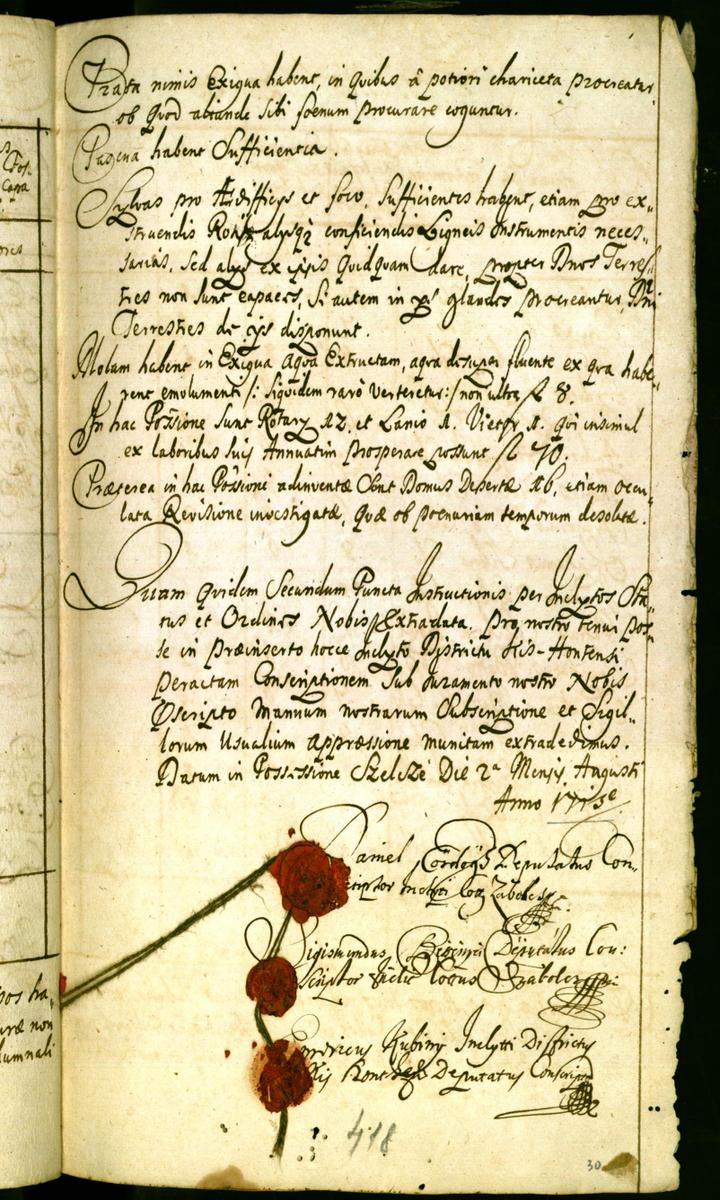 Prata nimis Exigua habent, in quibus à potiori chariceta procreatur
ob quod aliunde sibi foenum procurare coguntur.
Pascua habent Sufficientia.
Sylvas pro Ædifficys et foco, sufficientes habent, etiam pro ex-
struendis Rotis alysq conficiendis Ligneis Instrumentis neces-
sarias, sed alys ex ipsis quidquam dare, propter Dnos Terres-
tres non sunt capaces, Si autem in ys glandes procreantur, Dni
Terrestres de ijs disponunt.
Molam habent in Exigua aqua Extructam, aqva desuper fluente ex qva habe-
rent emolumenti /: siquidem raro verteretur :/ non ultra fl. 8.
In hac Possione sunt Rotary 12, et Lanio 1. Vietor 1. qvi insimul
ex laboribus suis Annuatim prosperare possunt fl. 70.
Præterea in hac Possioni adinventæ sunt Domus Desertæ 16, etiam ocu-
lata Revisione investigatæ, quæ ob poenuriam temporum desolatæ.
Quam quidem Secundum Puncta Instructionis per Inclytos Sta-
tus et Ordines Nobis Extradata. pro nostro tenui pos-
se in præinserto hocce Inclyto Districtu Kis-Hontensi
peractam Conscriptionem sub Juramento nostro Nobis
Manuum nostrarum Subscriptione et Sigil-
lorum Usualium appræssione munitam extradedimus.
Datum in Possessione Szelcze Die 2a Mensis Augusti
Anno 1715
Daniel Deputatus Con-
scriptor
Sigismundus Deputatus Con:
scriptor
Emericus Kubiny Inclyti Districtus
Kis Hont Deputatus Conscriptor
418
30